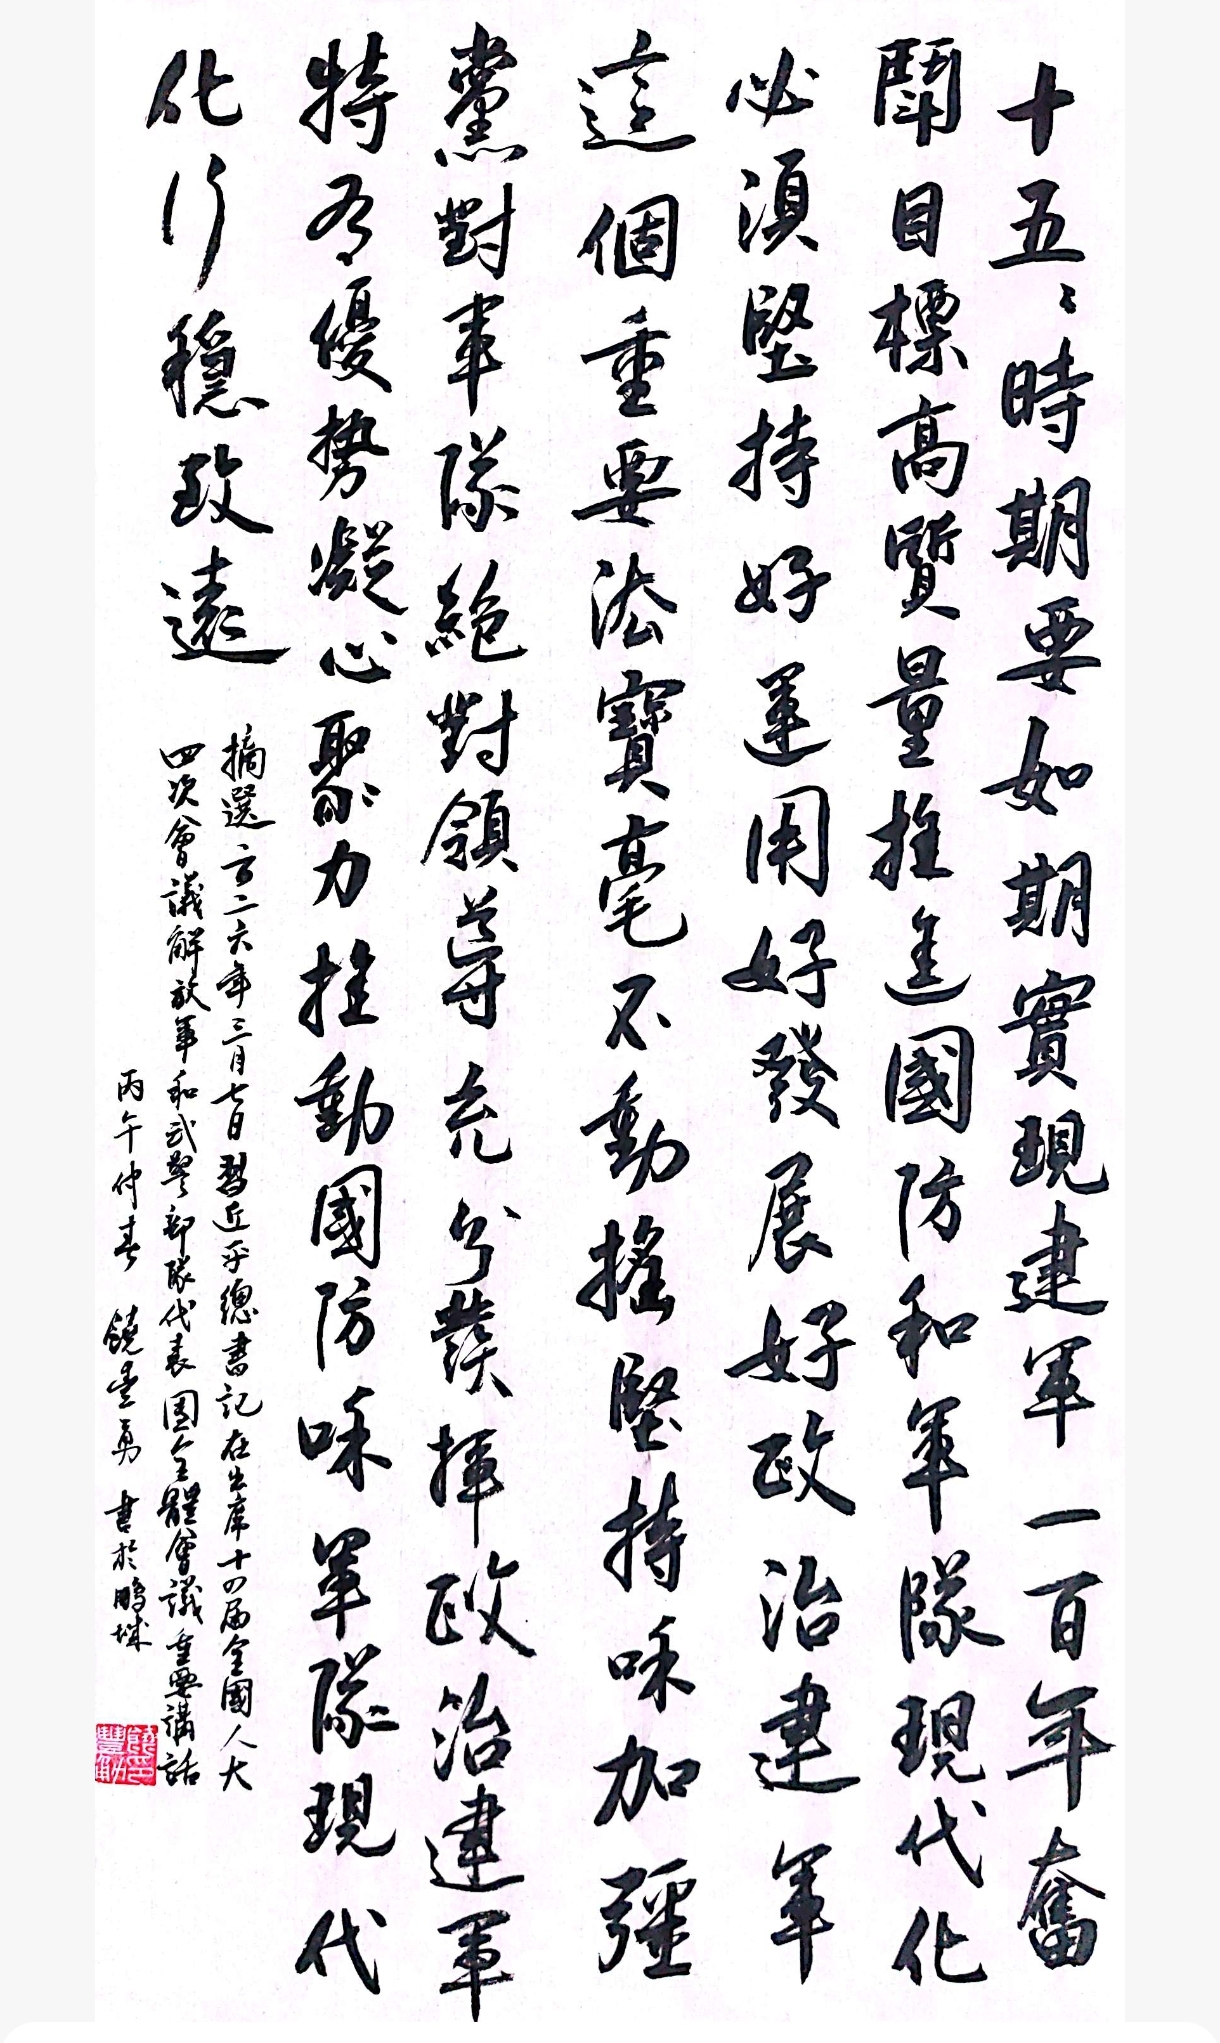 十五〻時期要如期實現建軍一百年奮
鬪目標高質量推進國防和軍隊現代化
必須堅持好運用好發展好政治建軍
這個重要法寶毫不動搖堅持和加強
黨對軍隊絕對領導充分發揮政治建軍
特有優勢凝心聚力推動國防和軍隊現代
化行穩致遠
摘選二〇二六年三月七日習近平總書記在出席十四屆全國人大
四次會議解放軍和武警部隊代表團全體會議重要講話
丙午仲春 饒 勇 書於鵬城